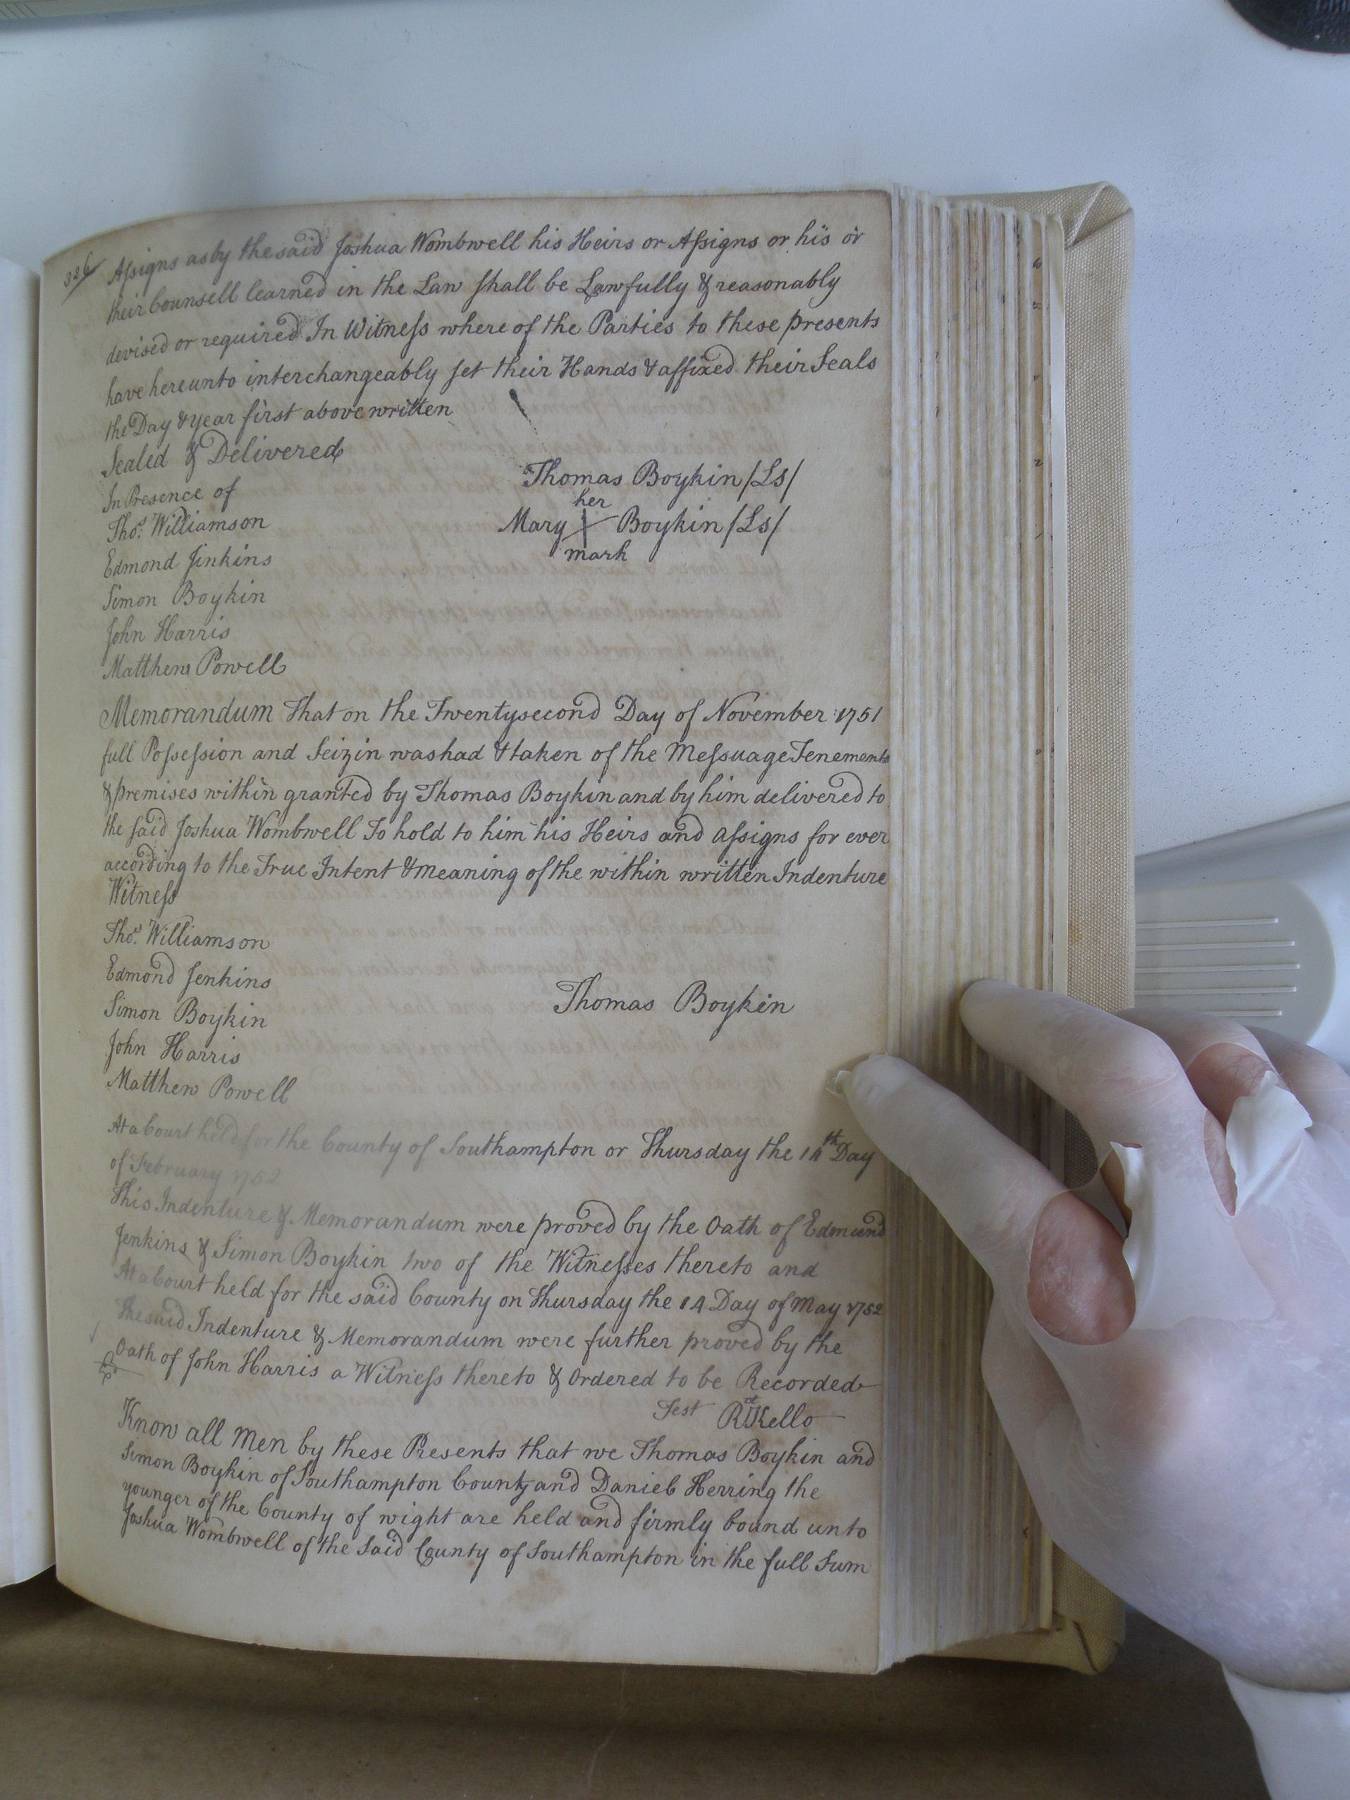 326
Assigns as by the said Joshua Wombwell his Heirs or Assigns or his or
their Counsell learned in the Law shall be Lawfully & reasonably
devised or required In Witness whereof the Parties to these presents
have hereunto interchangeably set their Hands & affixed their Seals
the Day & year first above written
Sealed & Delivered
In Presence of
Thomas Boykin /Ls/
her
Mary Boykin /Ls/
mark
Thos. Williamson
Edmond Jinkins
Simon Boykin
John Harris
Matthew Powell
Memorandum That on the Twentysecond Day of November 1751
full Possession and Seizin was had & taken of the Messuage Tenements
& premises within granted by Thomas Boykin and by him delivered to
the said Joshua Wombwell To hold to him his Heirs and assigns for ever
according to the True Intent & meaning of the within written Indenture
Witness
Thos. Williamson
Edmond Jenkins
Simon Boykin
Thomas Boykin
John Harris
Matthew Powell
At a Court held for the County of Southampton or Thursday the 14th Day
of February 1752
This Indenture & Memorandum were proved by the Oath of Edmund
Jenkins & Simon Boykin two of the Witnesses thereto and
At a Court held for the said County on Thursday the 14 Day of May 1752
The said Indenture & Memorandum were further proved by the
Oath of John Harris a Witness thereto & Ordered to be Recorded
Test Rd Kello
Know all Men by these Presents that we Thomas Boykin and
Simon Boykin of Southampton County and Daniel Herring the
younger of the County of wight are held and firmly bound unto
Joshua Wombwell of the Said County of Southampton in the full Sum